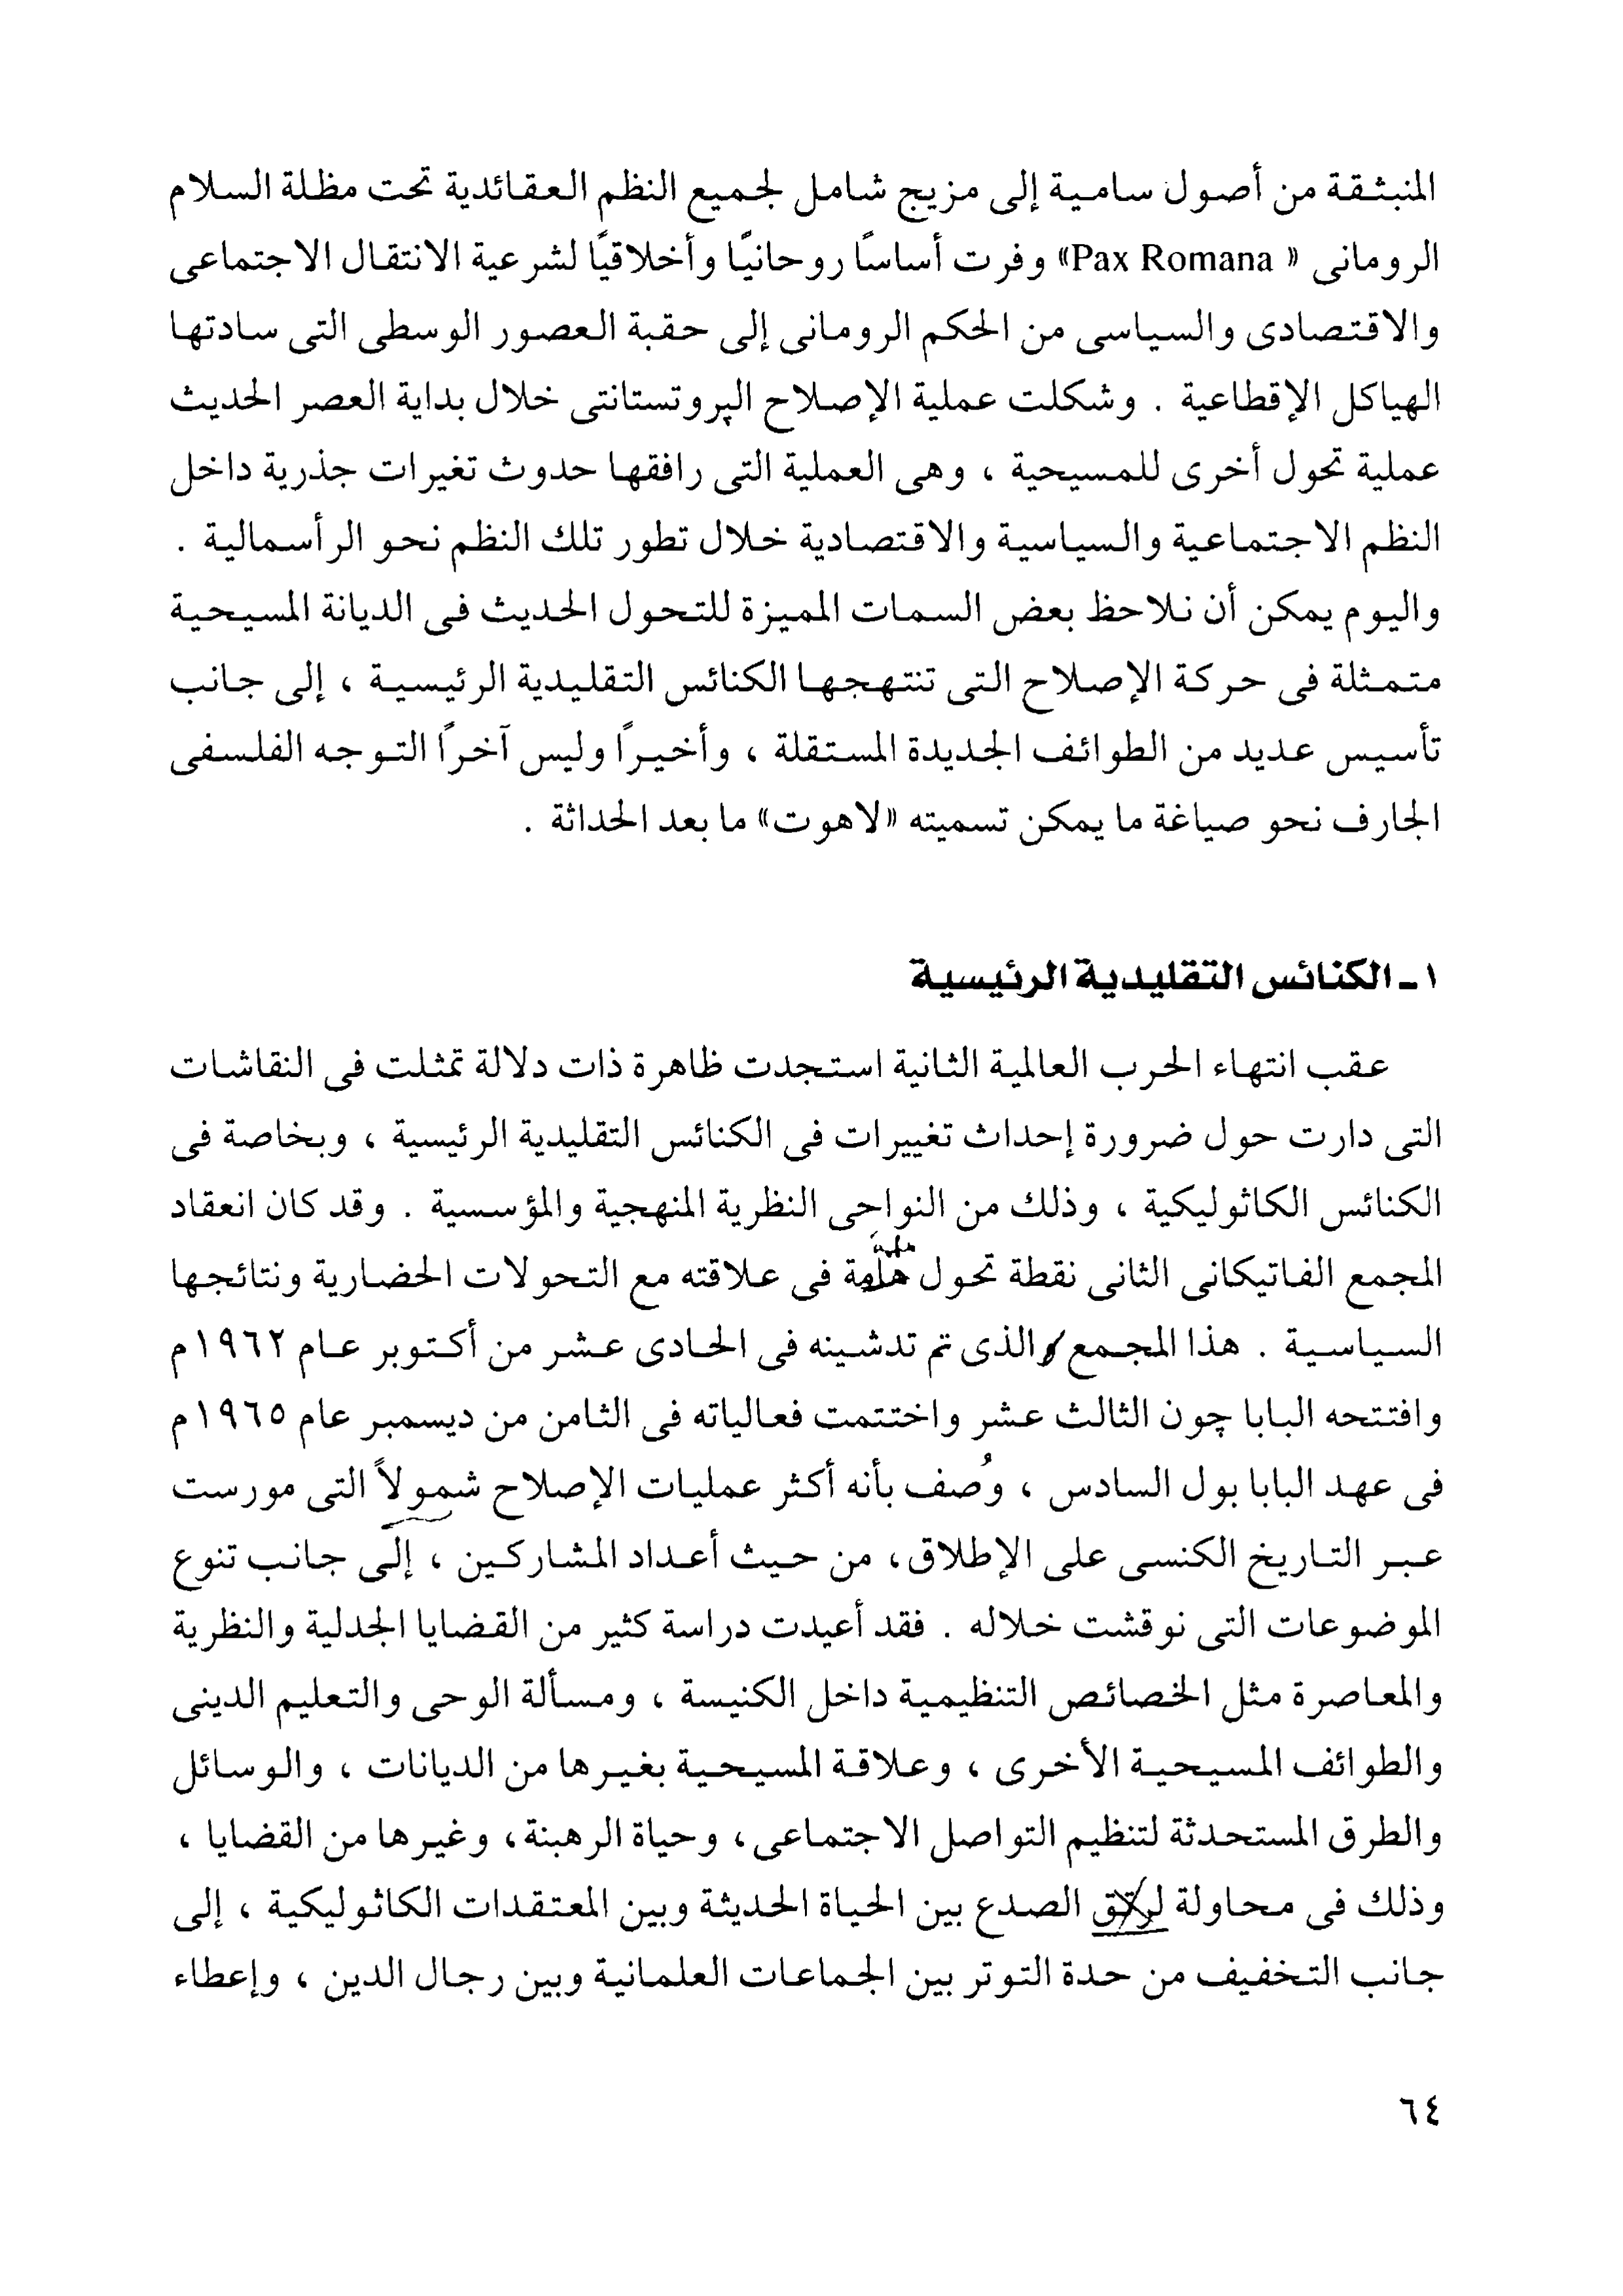 المنبثقة من أصول سامية إلى مزيج شامل لجميع النظم العقائدية تحت مظلة السلام
الرومانى « Pax Romana» وفرت أساسًا روحانيًا وأخلاقيًا لشرعية الانتقال الاجتماعى
والاقتصادى والسياسى من الحكم الرومانى إلى حقبة العصور الوسطى التى سادتها
الهياكل الإقطاعية . وشكلت عملية الإصلاح الپروتستانتى خلال بداية العصر الحديث
عملية تحول أخرى للمسيحية ، وهى العملية التى رافقها حدوث تغيرات جذرية داخل
النظم الاجتماعية والسياسية والاقتصادية خلال تطور تلك النظم نحو الرأسمالية .
واليوم يمكن أن نلاحظ بعض السمات المميزة للتحول الحديث فى الديانة المسيحية
متمثلة فى حركة الإصلاح التى تنتهجها الكنائس التقليدية الرئيسية ، إلى جانب
تأسيس عديد من الطوائف الجديدة المستقلة ، وأخيرًا وليس آخرًا التوجه الفلسفى
الجارف نحو صياغة ما يمكن تسميته «لاهوت» ما بعد الحداثة .
١ - الكنائس التقليدية الرئيسية
عقب انتهاء الحرب العالمية الثانية استجدت ظاهرة ذات دلالة تمثلت فى النقاشات
التى دارت حول ضرورة إحداث تغييرات فى الكنائس التقليدية الرئيسية ، وبخاصة فى
الكنائس الكاثوليكية ، وذلك من النواحى النظرية المنهجية والمؤسسية . وقد كان انعقاد
المجمع الفاتيكانى الثانى نقطة تحول هامة فى علاقته مع التحولات الحضارية ونتائجها
السياسية . هذا المجمع والذى تم تدشينه فى الحادى عشر من أكتوبر عام ١٩٦٢م
وافتتحه البابا چون الثالث عشر واختتمت فعالياته فى الثامن من ديسمبر عام ١٩٦٥م
فى عهد البابا بول السادس ، وُصف بأنه أكثر عمليات الإصلاح شمولاً التى مورست
عبر التاريخ الكنسى على الإطلاق، من حيث أعداد المشاركين ، إلى جانب تنوع
الموضوعات التى نوقشت خلاله . فقد أعيدت دراسة كثير من القضايا الجدلية والنظرية
والمعاصرة مثل الخصائص التنظيمية داخل الكنيسة ، ومسألة الوحى والتعليم الدينى
والطوائف المسيحية الأخرى ، وعلاقة المسيحية بغيرها من الديانات ، والوسائل
والطرق المستحدثة لتنظيم التواصل الاجتماعى، وحياة الرهبنة، وغيرها من القضايا ،
وذلك فى محاولة الصدع بين الحياة الحديثة وبين المعتقدات الكاثوليكية ، إلى
جانب التخفيف من حدة التوتر بين الجماعات العلمانية وبين رجال الدين ، وإعطاء
٦٤